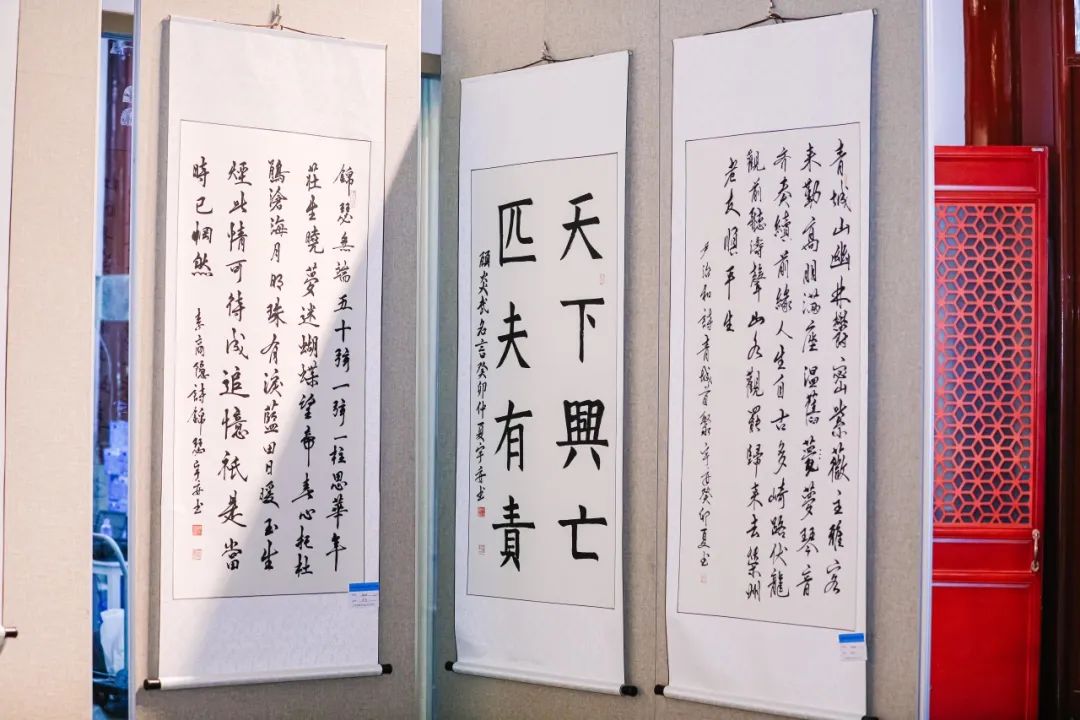 錦瑟無端五十弦一弦一柱思華年
莊生曉夢迷蝴蝶望帝春心托杜
鵑滄海月明珠有淚藍田日暖玉生
煙此情可待成追憶祇是當
時已惘然
李商隱詩錦瑟 书
天下興亡
匹夫有責
顧炎武名言癸卯仲夏宇亦书
青城山幽林欝密紫薇主雅客
来勤高朋滿座温舊夢琴音
齐奏續前緣人生自古多崎路伏龍
觀前聽涛聲山水觀罷歸来去榮州
老友順平生
尹治和詩青城首聚宇亦癸卯夏书